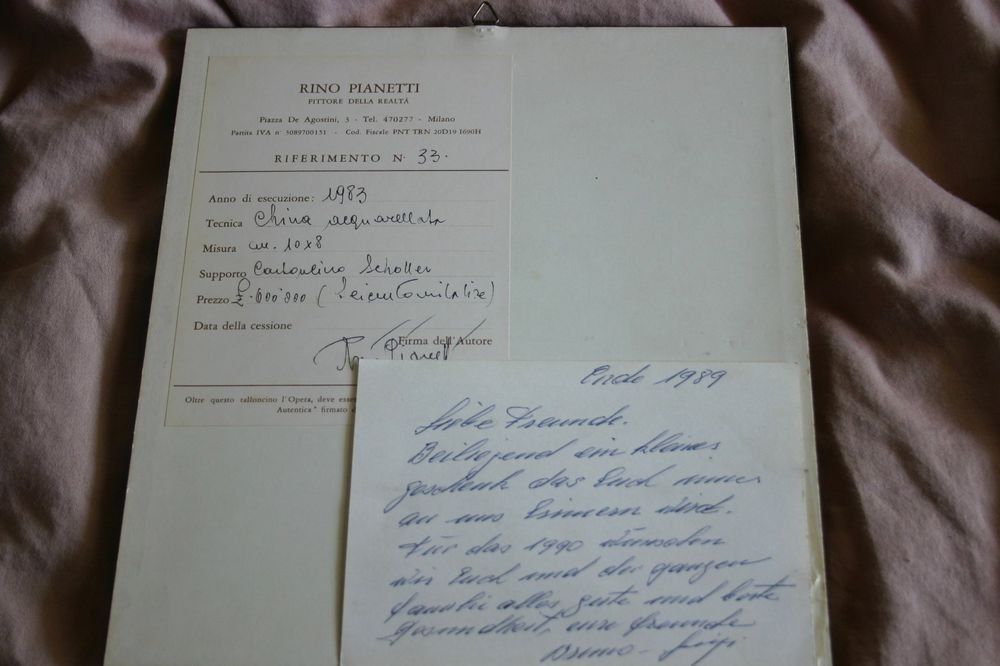 RINO PIANETTI
PITTORE DELLA REALTÀ
Piazza De Agostini, 3 - Tel. 470277 - Milano
Partita IVA n° 5089700151 - Cod. Fiscale PNT TRN 20D19 I690H
RIFERIMENTO N. 33.
Anno di esecuzione: 1983
Tecnica China acquarellata
Misura cm. 10x8
Supporto Cartoncino Scholler
Prezzo £. 600 000 (Seicentomila lire)
Data della cessione
Firma dell'Autore
Oltre questo talloncino l'Opera, deve esse
Autentica" firmato d
Ende 1989
Liebe Freunde.
Beiliegend ein kleines
geschenk das Euch immer
an uns Erinnern wird.
Für das 1990 wünschen
wir Euch und der ganzen
familie alles gute und beste
Gesundheit, eure freunde
Bruno -